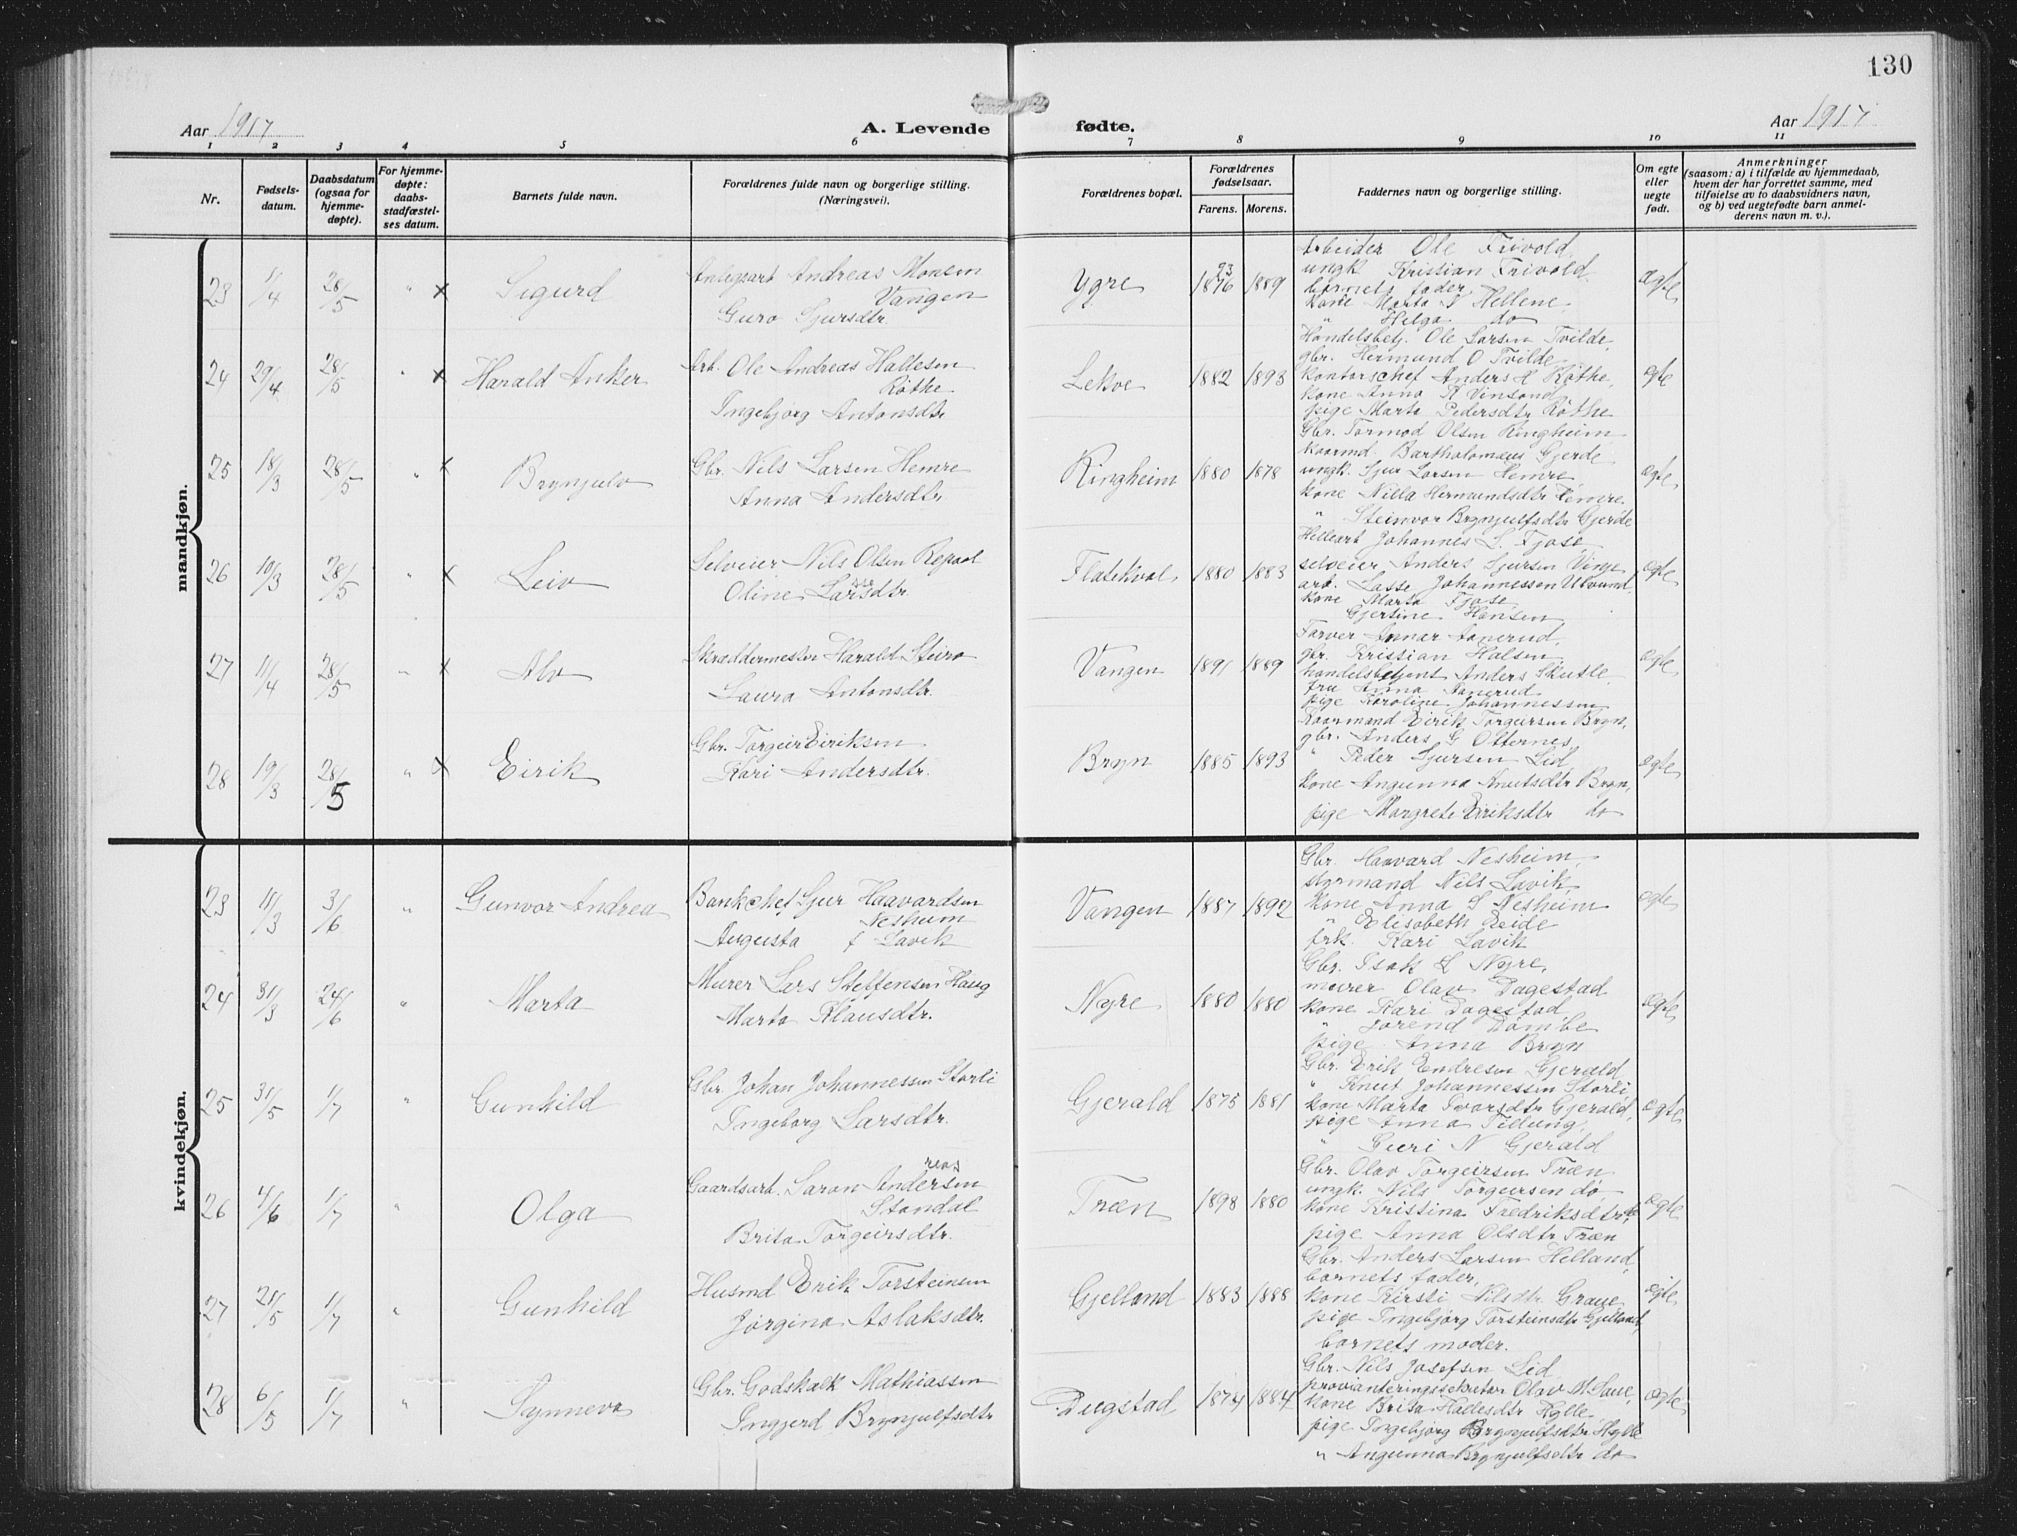 130
Aar 1917
A. Levende fødte.
Aar 1917
1 2 3 4 5 6 7 8 9 10 11
Nr.
Fødsels-
datum.
Daabsdatum
(ogsaa for
hjemme-
døpte).
For hjemme-
døpte:
daabs-
stadfæstel-
ses datum.
Barnets fulde navn.
Forældrenes fulde navn og borgerlige stilling.
(Næringsvei).
Forældrenes bopæl.
Forældrenes
fødselsaar.
Farens. Morens.
Faddernes navn og borgerlige stilling.
Om egte
eller
uegte
født.
Anmerkninger
(saasom: a) i tilfælde av hjemmedaab,
hvem der har forrettet samme, med
tilføielse av to daabsvidners navn,
og b) ved uegtefødte barn anmel-
derens navn m. v.).
mandkjøn.
23 1/4 28/5 " x Sigurd
Anlegsarb Andreas Monsen
Vangen
Guro Sjursdtr.
Ygre 93 1876 1889
Arbeider Ole Trivold,
ungk Kristian Trivold
barnets fader,
kone Marta S Hellene,
" Helga do
ægte
24 29/4 28/5 " x Harald Anker
Arb. Ole Andreas Hallesen
Røthe
Ingebjørg Antonsdtr
Lekve 1882 1893
Handelsbetj. Ole Larsen Tvilde,
gbr. Hermund O Tvilde
kontorschef Anders H Røthe,
kone Anna K Vinsand
pige Marta Pedersdtr Røthe
egte
25 18/3 28/5 " x Brynjulv
Gbr. Nils Larsen Hemre
Anna Andersdtr
Ringheim 1880 1878
Gbr. Tormod Olsen Ringheim
kaarmd Bartholomæus Gjerde
ungk. Sjur Larsen Hemre
kone Nilla Hermundsdtr Hemre
" Steinvor Brynjulfsdtr Gjerde
egte
26 10/3 28/5 " x Leiv
Selveier Nils Olsen Repaal
Oline Larsdtr.
Flatekval 1880 1883
Johannes L. Fjose
selveier Anders Sjursen Vinje
arb. Lasse Johannessen
kone Marta Fjose,
Gjertine Hansen
egte
27 11/4 28/5 " x Alv
Skræddermester Harald Steiro
Laura Antonsdtr.
Vangen 1891 1889
Farver Annar Aanerud,
gbr. Kristian Halsen,
handelsbetjent Anders Skutle,
fru Anna Aanerud
pige Karoline Johannessen
egte
28 19/3 28/5 " x Eirik
Gbr. Torgeir Eiriksen
Kari Andersdtr.
Bryn 1885 1893
Kaarmand Eirik Torgeirsen Bryn,
gbr. Anders G Otternes,
" Peder Sjursen Lid,
kone Angunna Knutsdtr Bryn,
pige Margrete Eiriksdtr do
egte
kvindekjøn.
23 11/3 3/6 " Gunvor Andrea
Bankchef Sjur Haavardsen
Nesheim
Augusta f Lavik
Vangen 1887 1892
Gbr. Haavard Nesheim,
styrmand Nils Lavik,
kone Anna S Nesheim
" Elisabeth Eeide
frk. Kari Lavik
egte
24 31/3 24/6 " Marta
Murer Lars Steffensen Haug
Marta Klausdtr.
Nyre 1880 1880
Gbr. Isak L Nyre,
murer Olav Dagestad
kone Kari Dagestad
" Jorend Dømbe
pige Anna Bryn
egte
25 31/5 1/7 " Gunhild
Gbr. Johan Johannessen Storli
Ingeborg Larsdtr.
Gjerald 1875 1881
Gbr. Erik Endresen Gjerald
" Knut Johannessen Storli
kone Marta Ivarsdtr Gjerald,
pige Anna Tillung,
" Guri N Gjerald
egte
26 4/6 1/7 " Olga
reas
Gaardsarb. Saron Andersen
Standal
Brita Torgeirsdtr.
Træn 1898 1880
Gbr. Olav Torgeirsen Træn
ungk. Nils Torgeirsen do,
kone Kristina Fredriksdtr do
pige Anna Olsdtr Træn
egte
27 21/5 1/7 " Gunhild
Husmd Erik Torsteinsen
Jørgina Aslaksdtr.
Gjelland 1883 1888
Gbr. Anders Larsen Helland,
barnets fader,
kone Kirsti Nilsdtr Graue,
pige Ingebjørg Torsteinsdtr Gjelland,
barnets moder.
egte
28 6/5 1/7 " Synneva
Gbr. Godskalk Mathiassen
Ingjerd Brynjulfsdtr
Dugstad 1874 1884
Gbr. Nils Josefsen Lid
provianteringssekretær Olav M. Saue,
kone Brita Hallesdtr Hylle
pige Ingebjørg Brynjulfsdtr Hylle
" Angunna Brynjulfsdtr do
egte